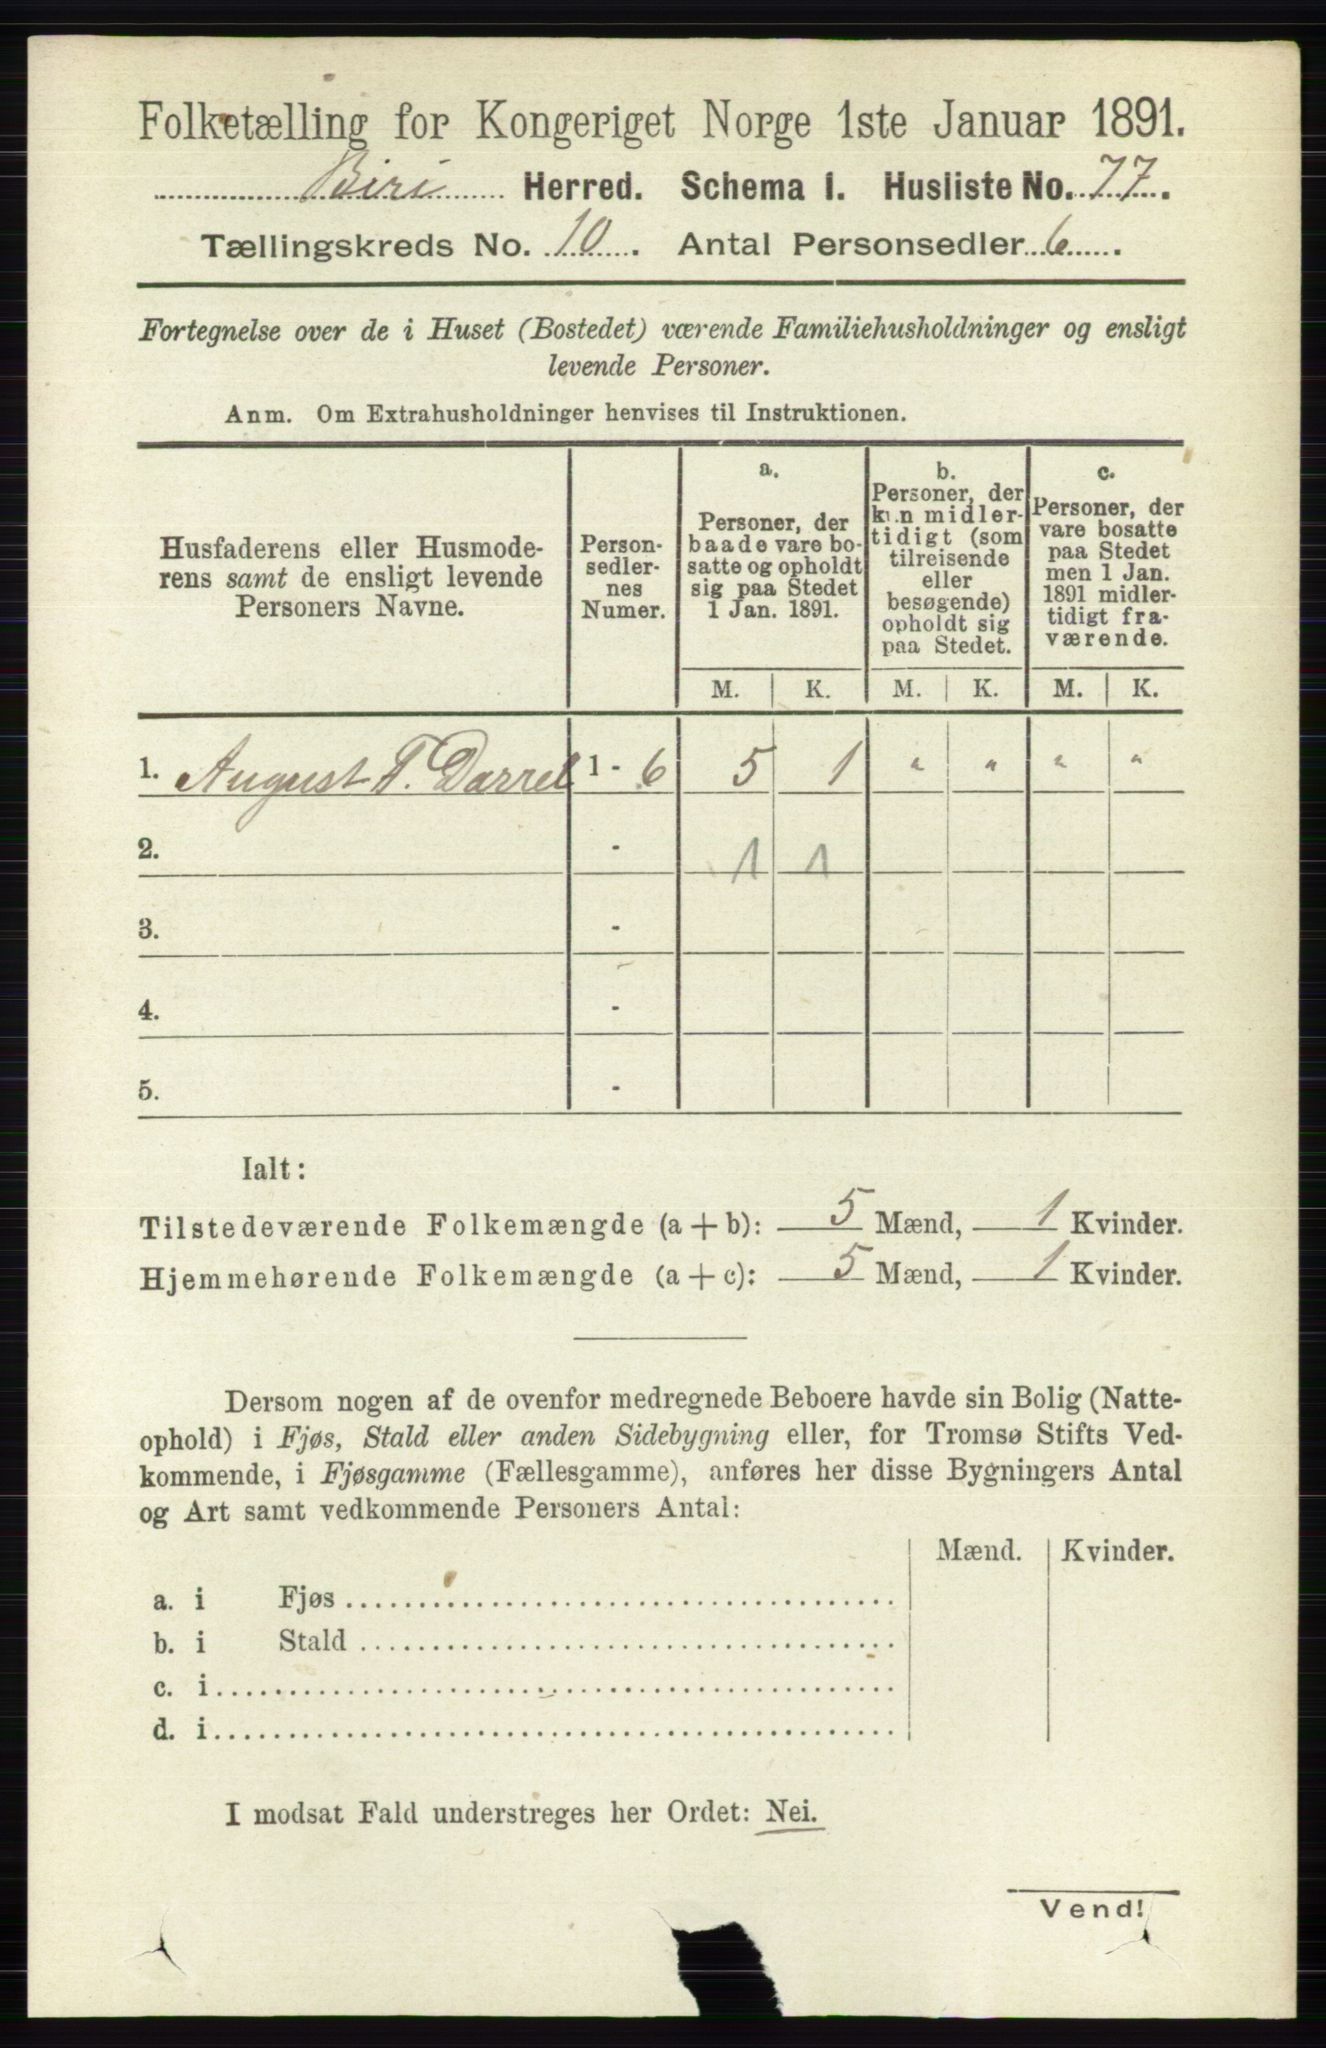 Folketælling for Kongeriget Norge 1ste Januar 1891.
Biri Herred. Schema I. Husliste No. 77.
Tællingskreds No. 10. Antal Personsedler 6.
Fortegnelse over de i Huset (Bostedet) værende Familiehusholdninger og ensligt
levende Personer.
Anm. Om Extrahusholdninger henvises til Instruktionen.
Husfaderens eller Husmode-
rens samt de ensligt levende
Personers Navne.
Person-
sedler-
nes
Numer.
a.
Personer, der
baade vare bo-
satte og opholdt
sig paa Stedet
1 Jan. 1891.
b.
Personer, der
kun midler-
tidigt (som
tilreisende
eller
besøgende)
opholdt sig
paa Stedet.
c.
Personer, der
vare bosatte
paa Stedet
men 1 Jan.
1891 midler-
tidigt fra-
værende.
M. K. M. K. M. K.
1. August T. Darrel 1 - 6 5 1 " " " "
2. - 1 1
3. -
4. -
5. -
Ialt:
Tilstedeværende Folkemængde (a + b): 5 Mænd, 1 Kvinder.
Hjemmehørende Folkemængde (a + c): 5 Mænd, 1 Kvinder.
Dersom nogen af de ovenfor medregnede Beboere havde sin Bolig (Natte-
ophold) i Fjøs, Stald eller anden Sidebygning eller, for Tromsø Stifts Ved-
kommende, i Fjøsgamme (Fællesgamme), anføres her disse Bygningers Antal
og Art samt vedkommende Personers Antal:
Mænd. Kvinder.
a. i Fjøs
b. i Stald
c. i
d. i
I modsat Fald understreges her Ordet: Nei.
Vend!